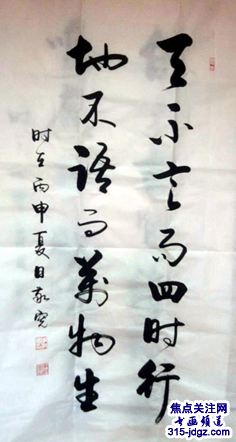 天不言而四时行
地不语而万物生
时在丙申夏日敬宪
焦点关注网
书画频道
315-jdgz.com